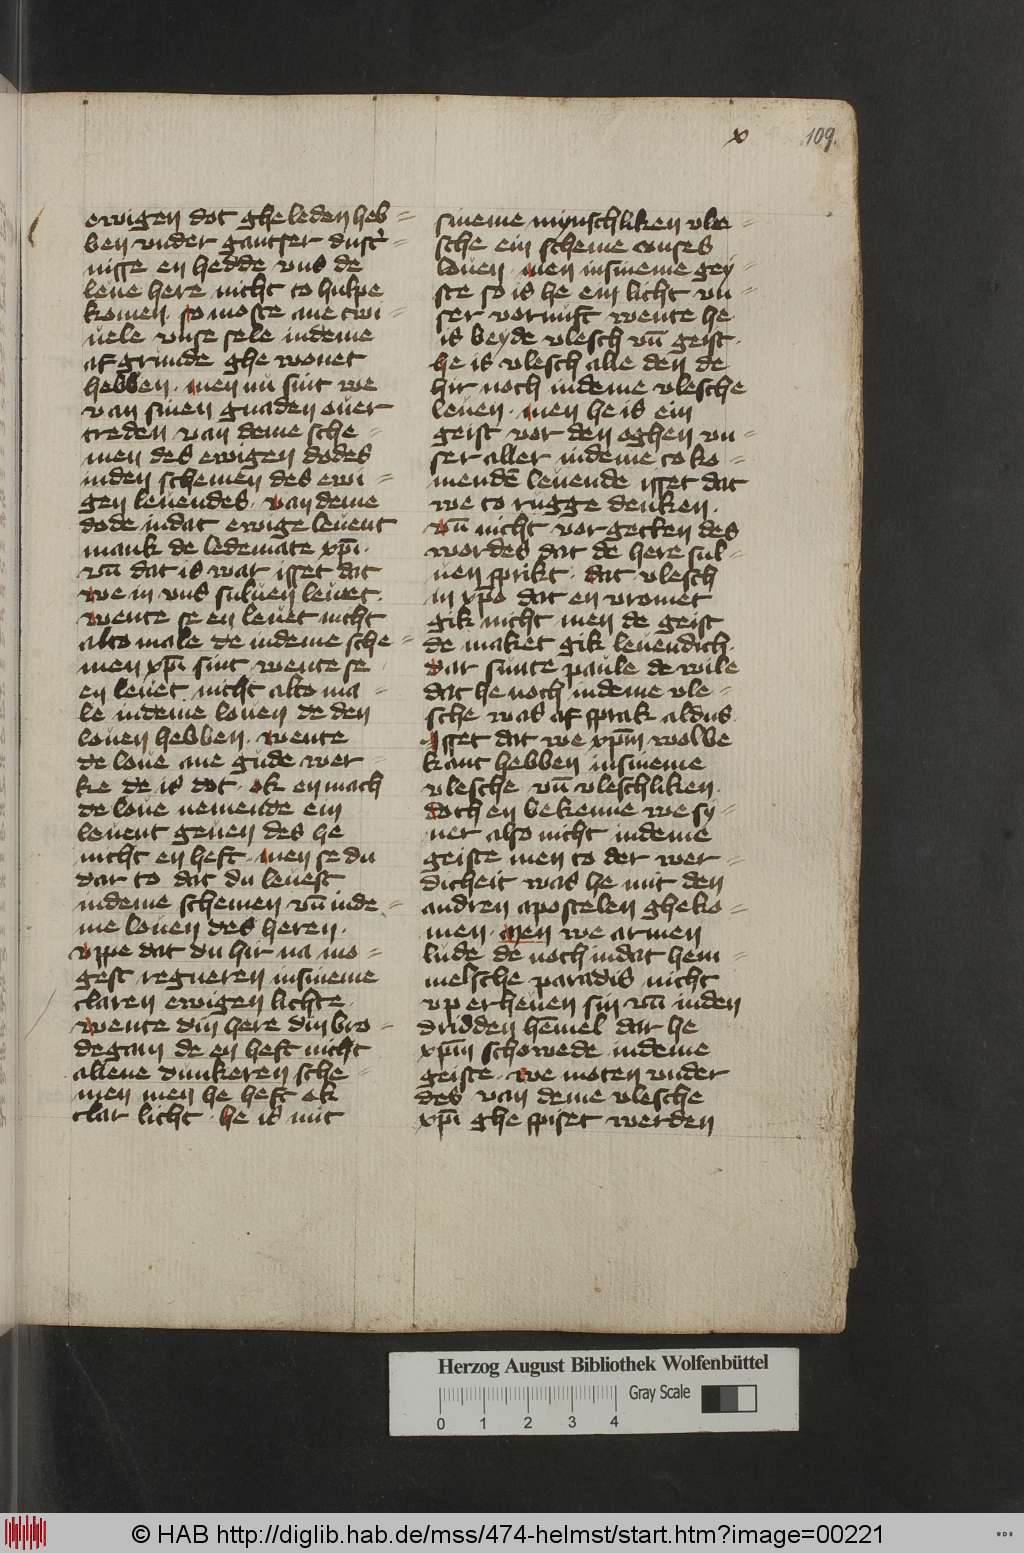 x 109.
ewigen dot ghe leden heb=
ben vnder gantser dust'=
nisse en hedde vns de
leue here nicht to hulpe
komen. so moste ane twi=
uele vnse sele indeme
afgrunde ghe wonet
hebben. men nu sint we
van sinen gnaden ouer
treden van deme sche=
men des ewigen dodes
inden schemen des ewi=
gen leuendes. van deme
dode indat ewige leuent
mank de ledemate xp̄i.
vn̄ dat is war isset dat
we in vns suluen leuet.
wente se en leuet nicht
alto male de indeme sche=
men xp̄i sint wente se
en leuet nicht alto ma=
le indeme louen de den
louen hebben. wente
de loue ane gude wer=
ke de is dot. ok en mach
de loue nemende ein
leuent geuen des he
nicht en heft. men se du
dar to dat du leuest
indeme schemen vn̄ inde=
me louen des heren.
vppe dat du hir na mo=
gest regneren insineme
claren ewigen lichte.
wente din here din bro=
degam de en heft nicht
allene dunkeren sche=
men men he heft ok
clar licht. he is mit
sineme mynschliken vle=
sche ein scheme onses
louen. men insineme gey=
ste so is he ein licht vn=
ser vornuft wente he
is beyde vlesch vn̄ geist.
he is vlesch alle den de
hir noch indeme vlesche
leuen. men he is ein
geist vor den oghen vn=
ser aller indeme to ko=
mendē leuende isset dat
we to rugge denken.
vn̄ nicht vor getten des
wordes dat de here sul=
uen sprikt. dat vlesch
in xp̄o dat en vromet
gik nicht men de geist
de maket gik leuendich.
dar sunte paule de wile
dat he noch indeme vle=
sche was af sprak aldus.
Isset dat we xp̄m wolbe
kant hebben insineme
vlesche vn̄ vleschliken.
doch en bekenne we sy=
ner also nicht indeme
geiste men to der wer=
dicheit was he mit den
andren apostelen gheko=
men. men we armen
lude de noch indat hem=
melsche paradis nicht
vp erheuen sin vn̄ inden
dridden hēmel dar he
xp̄m schowede indeme
geiste. we moten vnder
des van deme vlesche
xp̄i ghe spiset werden
Herzog August Bibliothek Wolfenbüttel
Gray Scale
0 1 2 3 4
© HAB http://diglib.hab.de/mss/474-helmst/start.htm?image=00221